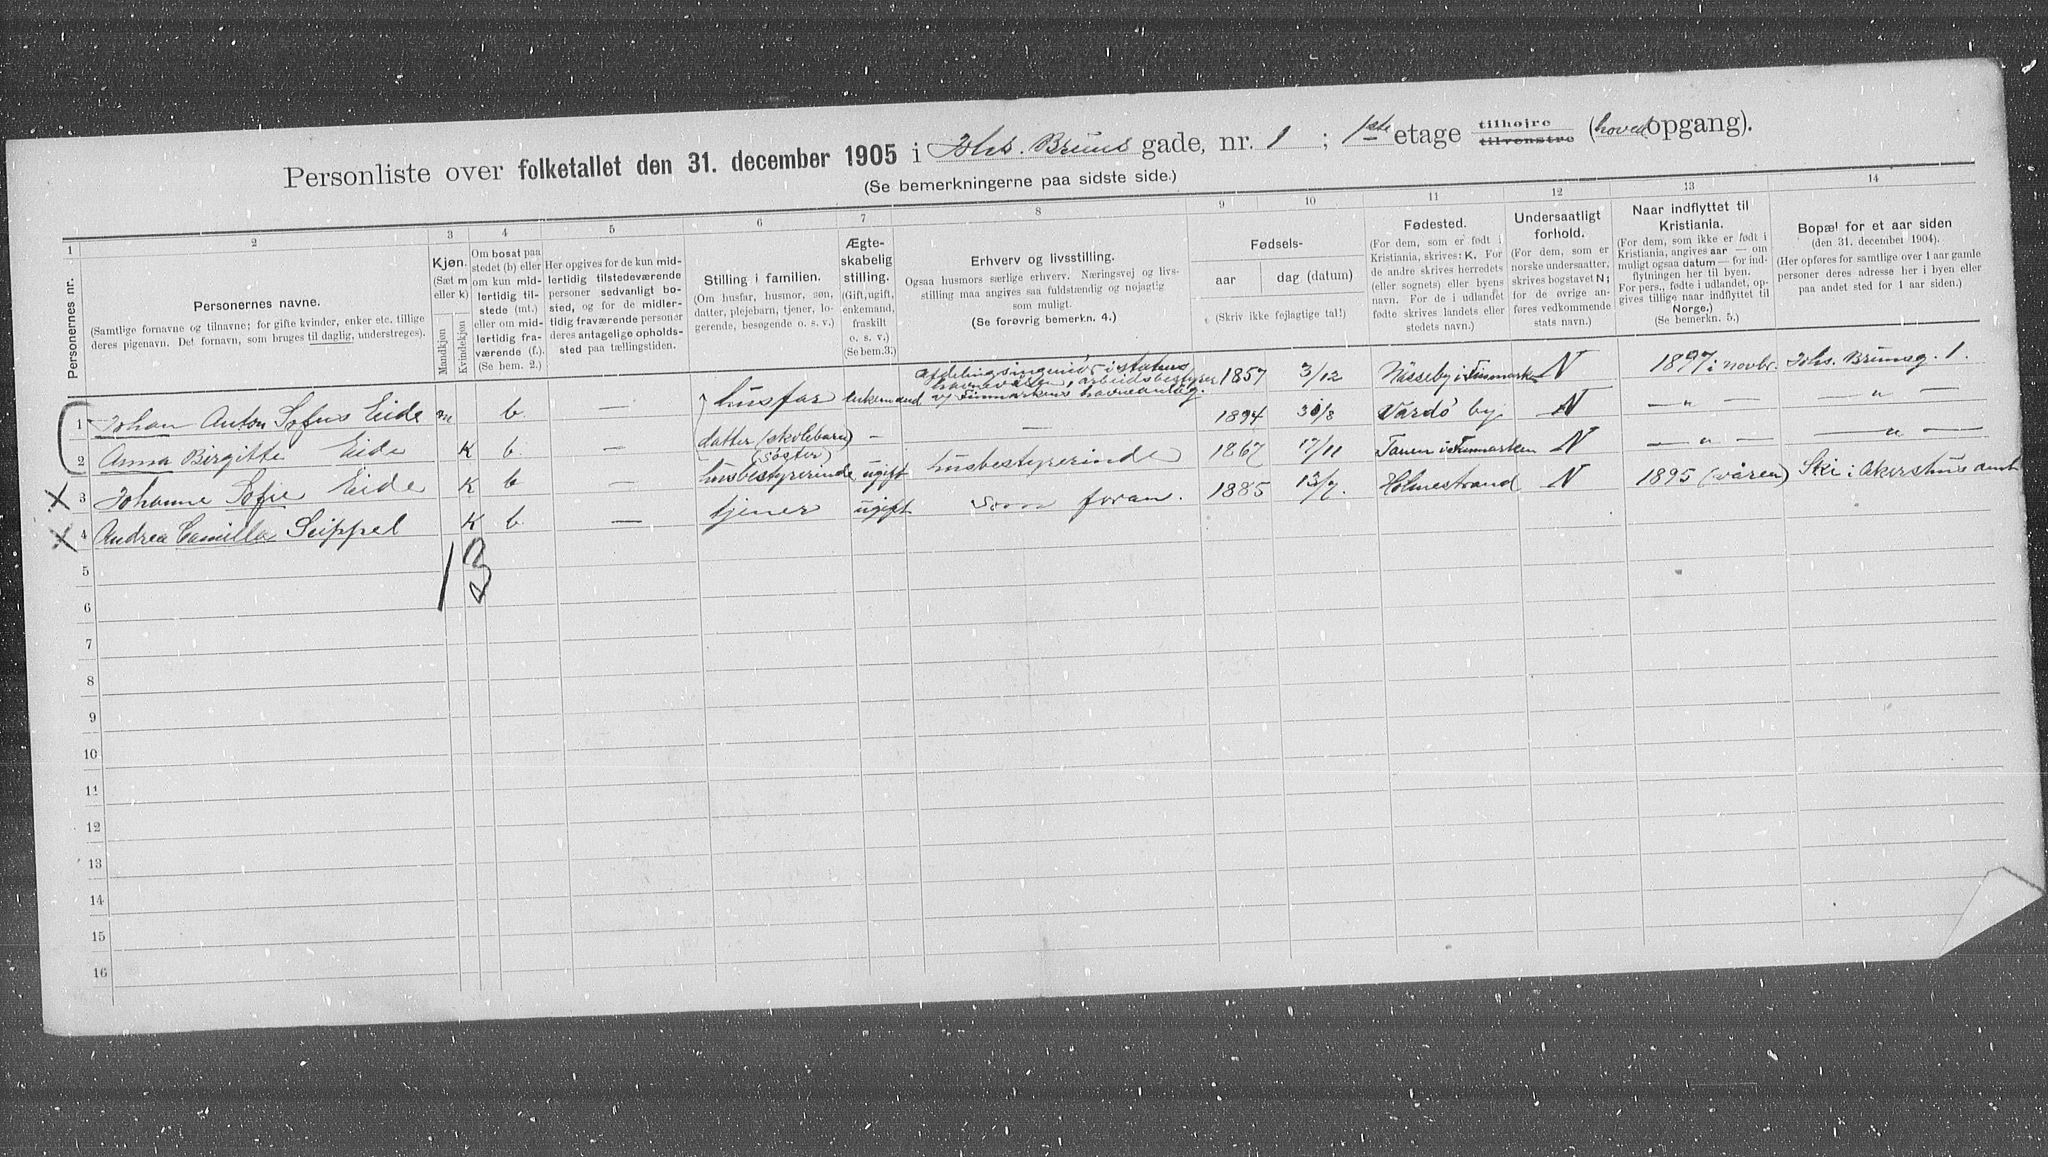 Personliste over folketallet den 31. december 1905 i Johs. Bruns gade, nr. 1 ; 1ste etage tilhøjre tilvenstre (hovedopgang).
(Se bemerkningerne paa sidste side.)
1 2 3 4 5 6 7 8 9 10 11 12 13 14
Personernes nr.
Personernes navne.
(Samtlige fornavne og tilnavne; for gifte kvinder, enker etc. tillige
deres pigenavn. Det fornavn, som bruges til daglig, understreges).
Kjøn.
(Sæt m
eller k)
Mandkjøn
Kvindekjøn
Om bosat paa
stedet (b) eller
om kun mid-
lertidig til-
stede (mt.)
eller om mid-
lertidig fra-
værende (f.).
(Se bem. 2.)
Her opgives for de kun mid-
lertidig tilstedeværende
personer sedvanlig bo-
sted, og for de midler-
tidig fraværende personer
deres antagelige opholds-
sted paa tællingstiden.
Stilling i familien.
(Om husfar, husmor, søn,
datter, plejebarn, tjener, lo-
gerende, besøgende o. s. v.)
Ægte-
skabelig
stilling.
(Gift, ugift,
enkemand,
fraskilt
o. s. v.)
(Se bem.3.)
Erhverv og livsstilling.
Ogsaa husmors særlige erhverv. Næringsvej og livs-
stilling maa angives saa fuldstændig og nøjagtig
som muligt.
(Se forøvrig bemerkn. 4.)
Fødsels-
aar dag (datum)
(Skriv ikke fejlagtige tal!)
Fødested.
(For dem, som er født i
Kristiania, skrives: K. For
de andre skrives herredets
(eller sognets) eller byens
navn. For de i udlandet
fødte skrives landets eller
stedets navn.)
Undersaatligt
forhold.
(For dem, som er
norske undersaatter,
skrives bogstavet N;
for de øvrige an-
føres vedkommende
stats navn.)
Naar indflyttet til
Kristiania.
(For dem, som ikke er født i
Kristiania, angives aar — om
muligt ogsaa datum — for ind-
flytningen her til byen.
For pers., fødte i udlandet, op-
gives tillige naar indflyttet til
Norge.)
(Se bemerkn. 5.)
Bopæl for et aar siden
(den 31. december 1904).
(Her opføres for samtlige over 1 aar gamle
personer deres adresse her i byen eller
paa andet sted for 1 aar siden.)
1 Johan Anton Sofus Eide m b — husfar enkemand afdelingsingeniør i statens
havnevæsen, arbeidsbestyrer
v/ Finmarkens havneanlæg. 1857 3/12 Nesseby i Finmarken N 1897 i novbr. Johs. Brunsg. 1.
2 Anna Birgitte Eide K b — datter (skolebarn) — — 1894 30/8 Vardø by N — " — — " —
3 Johanne Sofie Eide K b — (søster) husbestyrerinde ugift husbestyrerinde 1867 17/11 Tanen i Finmarken N — " — — " —
4 Andrea Camilla Seippel K b — tjener ugift som foran. 1885 13/7. Holmestrand N 1895 (våren) Ski i Akershus amt
1 3
5
6
7
8
9
10
11
12
13
14
15
16